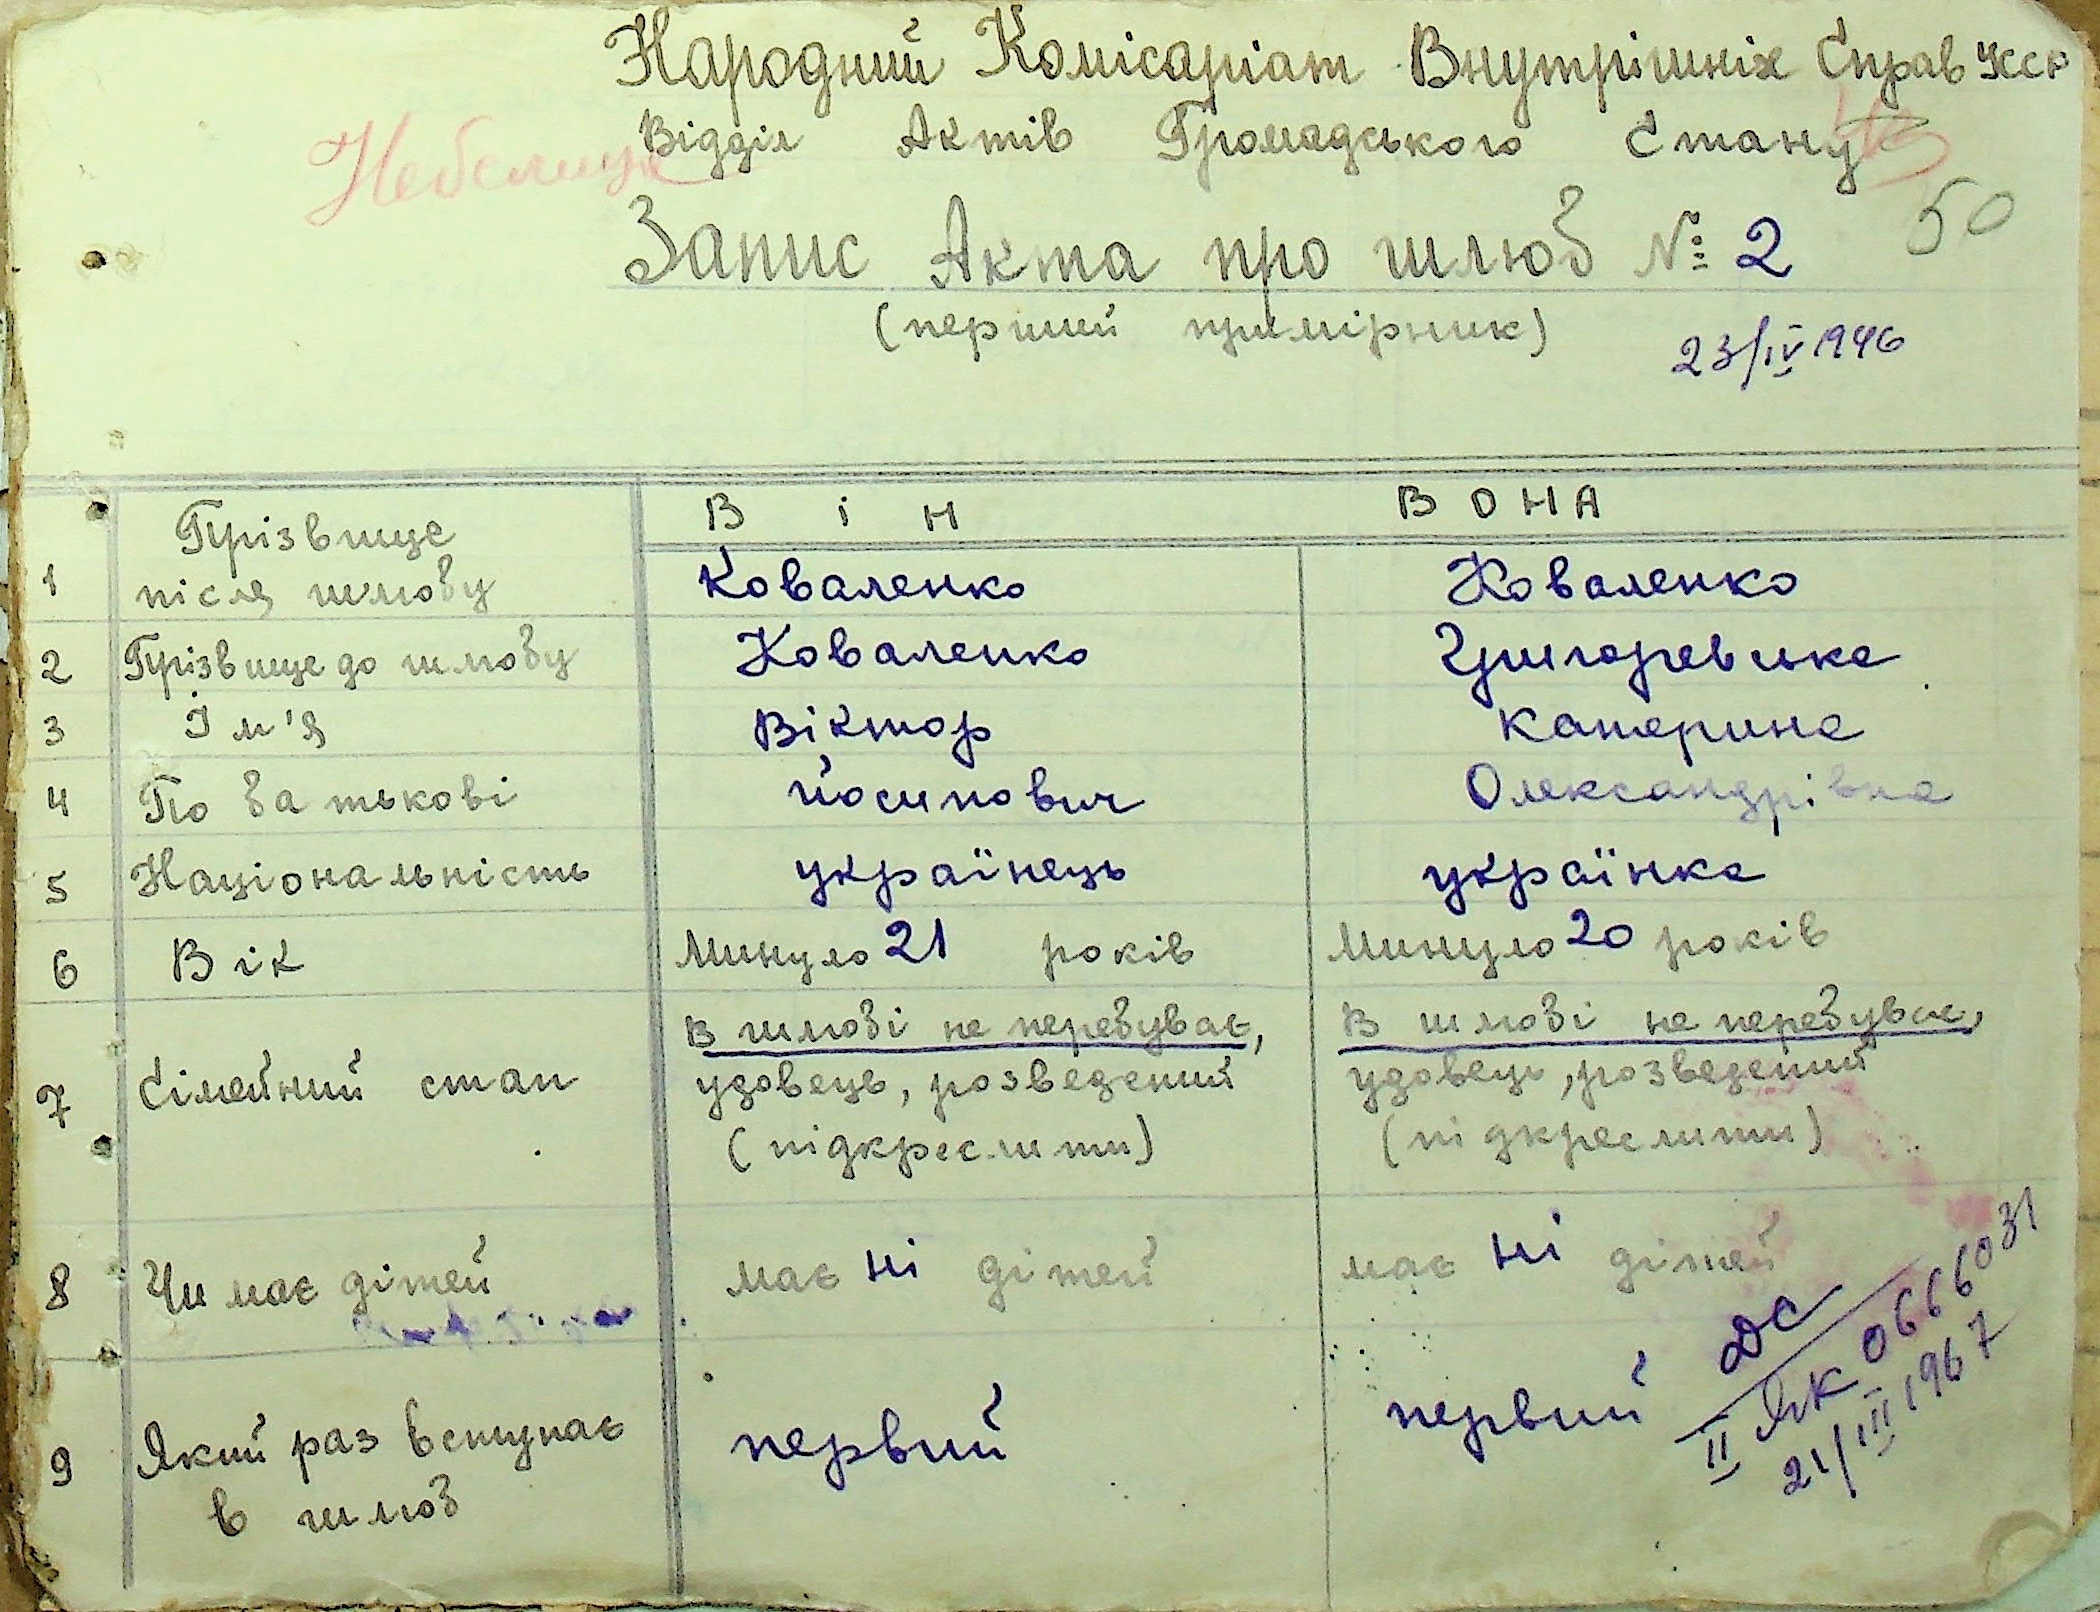 Народний Комісаріат Внутрішніх Справ УССР
Відділ Актів Громадського Стану
Небелиця
50
Запис Акта про шлюб № 2
(перший примірник)
23/IV 1946
В і н В О Н А
1 Прізвище після шлюбу Коваленко Коваленко
2 Прізвище до шлюбу Коваленко Григоревська
3 Ім'я Віктор Катерина
4 По батькові Йосипович Олександрівна
5 Національність українець українка
6 Вік Минуло 21 років Минуло 20 років
7 Сімейний стан
В шлюбі не перебуває, удовець, розведений (підкреслити)
В шлюбі не перебуває, удовець, розведений (підкреслити)
8 Чи має дітей має ні дітей має ні дітей
9 Який раз вступає в шлюб первий первий
ДС
II ЯК 0666031
21/III 1967